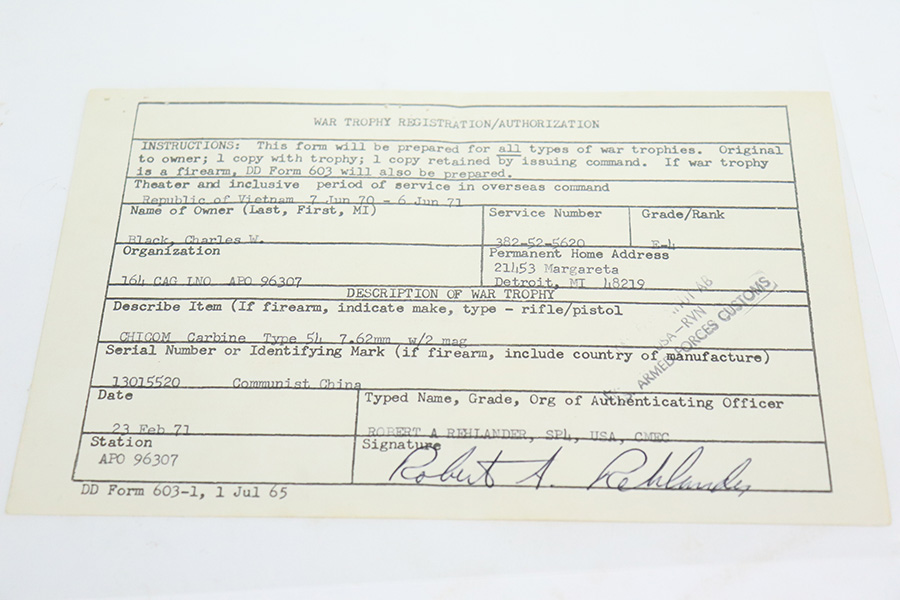 WAR TROPHY REGISTRATION/AUTHORIZATION
INSTRUCTIONS: This form will be prepared for all types of war trophies. Original
to owner; 1 copy with trophy; 1 copy retained by issuing command. If war trophy
is a firearm, DD Form 603 will also be prepared.
Theater and inclusive period of service in overseas command
Republic of Vietnam 7 Jun 70 - 6 Jun 71
Name of Owner (Last, First, MI) Service Number Grade/Rank
Black, Charles W. 382-52-5620 E-4
Organization Permanent Home Address
21453 Margareta
164 CAG LNO APO 96307 Detroit, MI 48219
DESCRIPTION OF WAR TROPHY
Describe Item (If firearm, indicate make, type - rifle/pistol
CHICOM Carbine Type 54 7.62mm w/2 mag
Serial Number or Identifying Mark (if firearm, include country of manufacture)
13015520 Communist China
USA-RVN
ARMED FORCES CUSTOMS
Date Typed Name, Grade, Org of Authenticating Officer
23 Feb 71 ROBERT A REHLANDER, SP4, USA, CMEC
Station Signature
APO 96307 Robert A. Rehlander
DD Form 603-1, 1 Jul 65